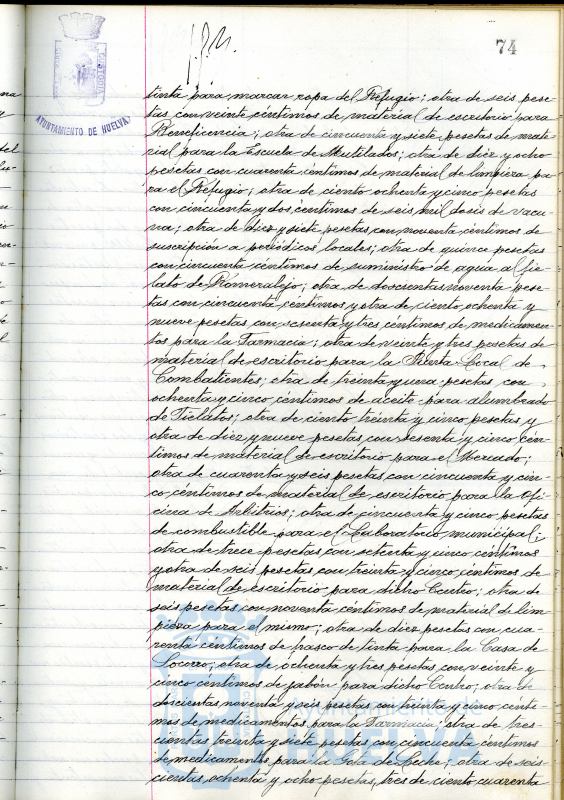 74
AYUNTAMIENTO DE HUELVA
tinta para marcar ropa del Refugio; otra de seis pese-
tas con veinte céntimos de material de escritorio para
Beneficencia; otra de cincuenta y siete pesetas de mate-
rial para la Escuela de Mutilados; otra de diez y ocho
pesetas con cuarenta céntimos de material de limpieza pa-
ra el Refugio; otra de ciento ochenta y cinco pesetas
con cincuenta y dos céntimos de seis mil dosis de vacu-
na; otra de diez y siete pesetas con noventa céntimos de
suscripción a periódicos locales; otra de quince pesetas
con cincuenta céntimos de suministro de agua al fie-
lato de Romeralejo; otra de doscientas noventa pese-
tas con cincuenta céntimos y otra de ciento ochenta y
nueve pesetas con sesenta y tres céntimos de medicamen-
tos para la Farmacia; otra de veinte y tres pesetas de
material de escritorio para la Junta Local de
Combatientes; otra de treinta y una pesetas con
ochenta y cinco céntimos de aceite para alumbrado
de Fielatos; otra de ciento treinta y cinco pesetas y
otra de diez y nueve pesetas con sesenta y cinco cén-
timos de material de escritorio para el Mercado;
otra de cuarenta y seis pesetas con cincuenta y cin-
co céntimos de material de escritorio para la Ofi-
cina de Arbitrios; otra de cincuenta y cinco pesetas
de combustible para el Laboratorio municipal;
otra de trece pesetas con setenta y cinco céntimos
y otra de seis pesetas con treinta y cinco céntimos de
material de escritorio para dicho Centro; otra de
seis pesetas con noventa céntimos de material de lim-
pieza para el mismo; otra de diez pesetas con cua-
renta céntimos de frasco de tinta para la Casa de
Socorro; otra de ochenta y tres pesetas con veinte y
cinco céntimos de jabón para dicho Centro; otra de
doscientas noventa y seis pesetas con treinta y cinco cénti-
mos de medicamentos para la Farmacia; otra de tres-
cientas treinta y siete pesetas con cincuenta céntimos
de medicamentos para la Gota de Leche; otra de seis-
cientas ochenta y ocho pesetas, tres de ciento cuarenta
HUELVA